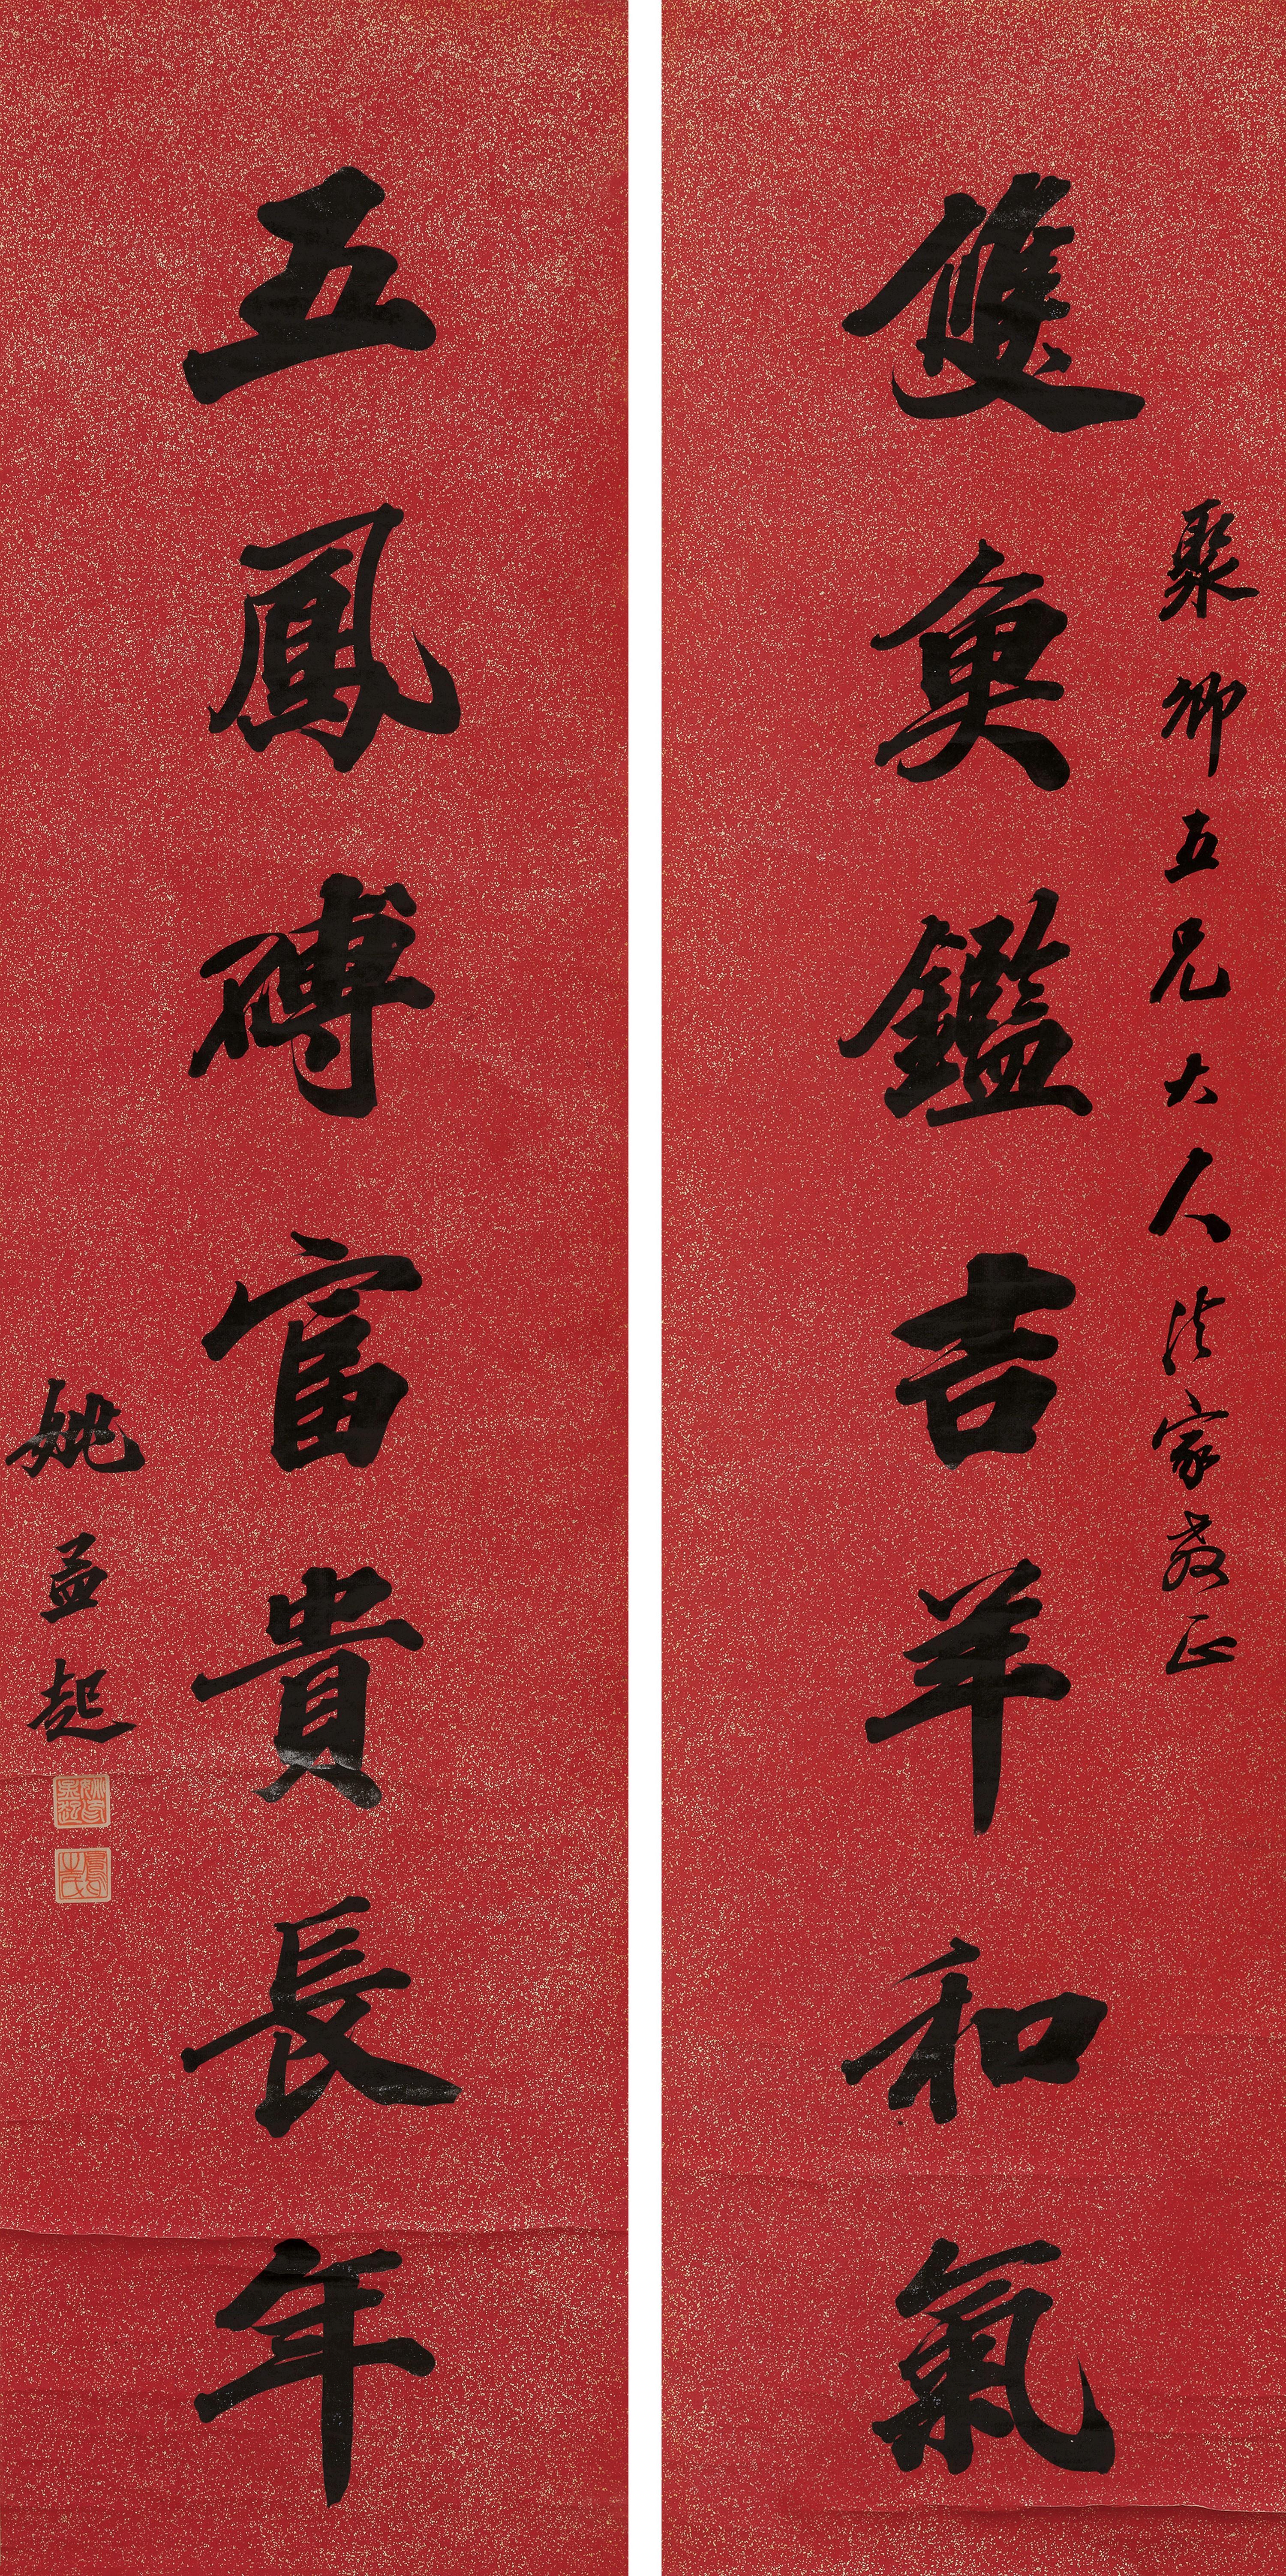 聚卿五兄大人法家教正
雙魚鑑吉羊和氣
五鳳磚富貴長年
姚孟起